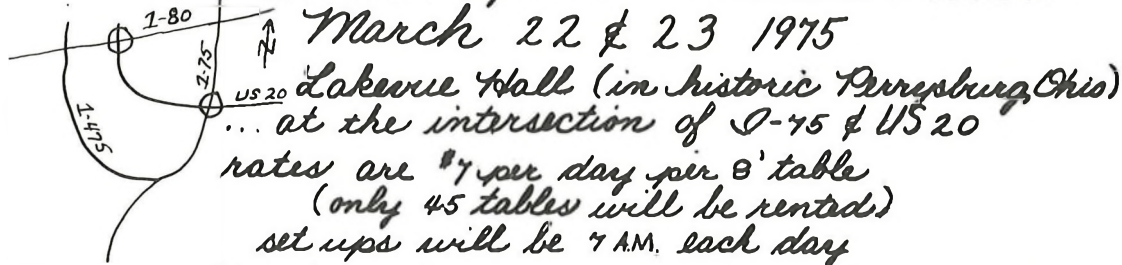 I-80
N
March 22 & 23 1975
I-75
US 20
Lakevue Hall (in historic Perrysburg, Ohio)
I-475
... at the intersection of I-75 & US 20
rates are $7 per day per 8' table
(only 45 tables will be rented)
set ups will be 7 A.M. each day